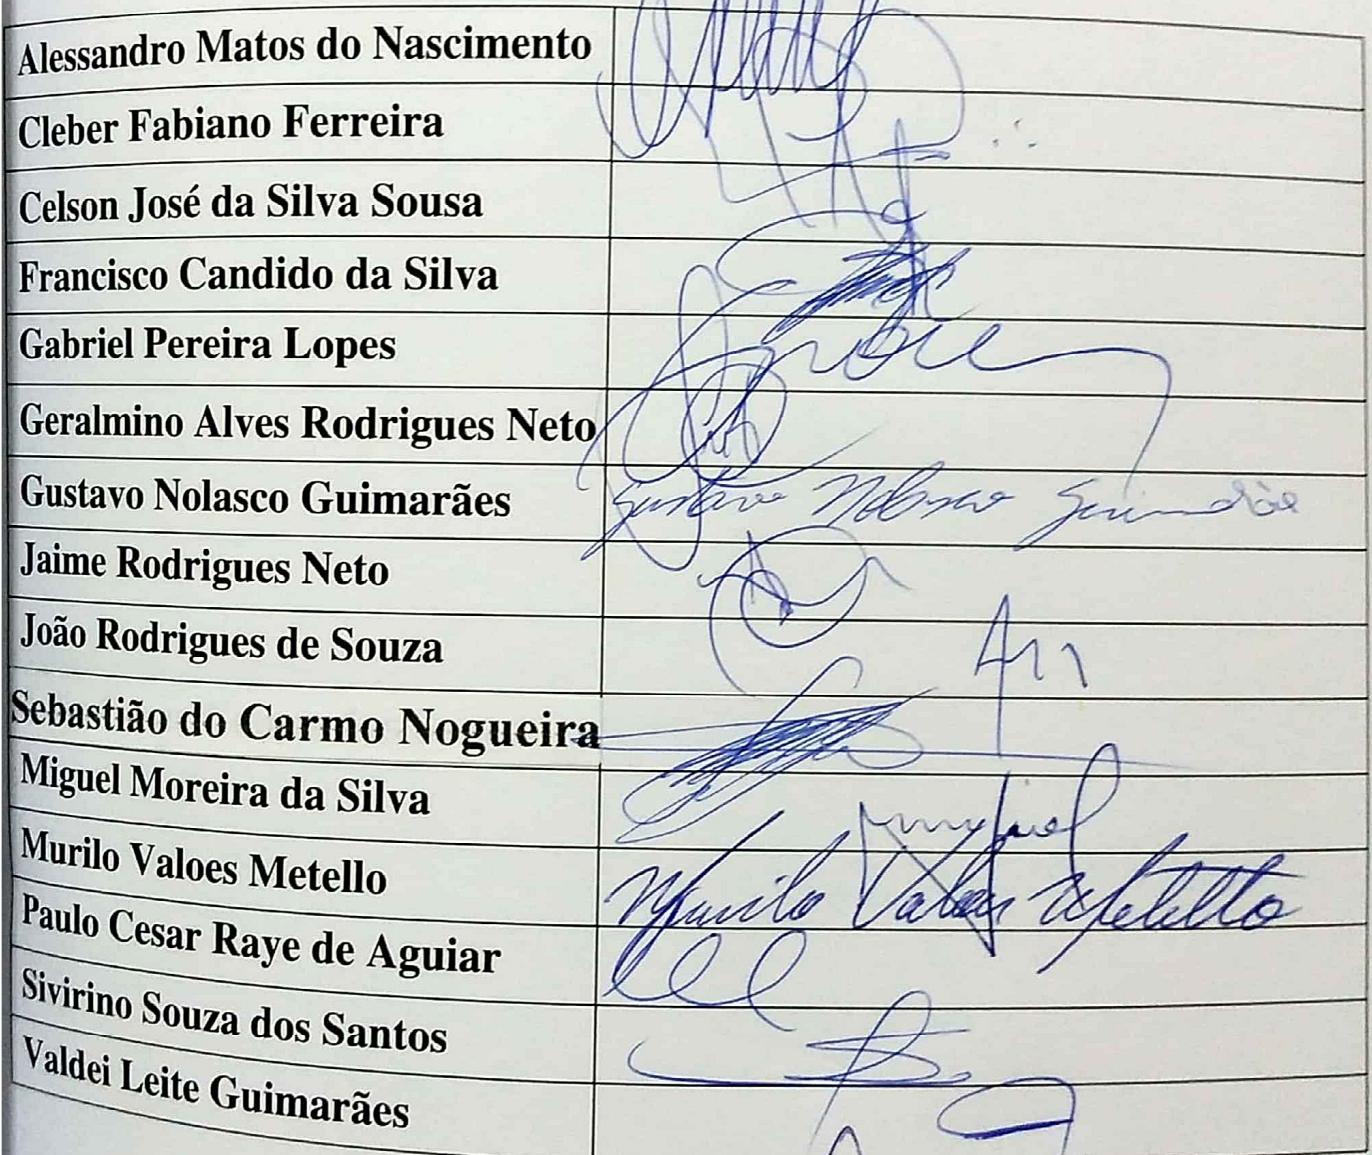 Alessandro Matos do Nascimento
Cleber Fabiano Ferreira
Celson José da Silva Sousa
Francisco Candido da Silva
Gabriel Pereira Lopes
Geralmino Alves Rodrigues Neto
Gustavo Nolasco Guimarães Gustavo Nolasco Guimarães
Jaime Rodrigues Neto
João Rodrigues de Souza
Sebastião do Carmo Nogueira
Miguel Moreira da Silva Miguel
Murilo Valoes Metello Murilo Valoes Metello
Paulo Cesar Raye de Aguiar
Sivirino Souza dos Santos
Valdei Leite Guimarães